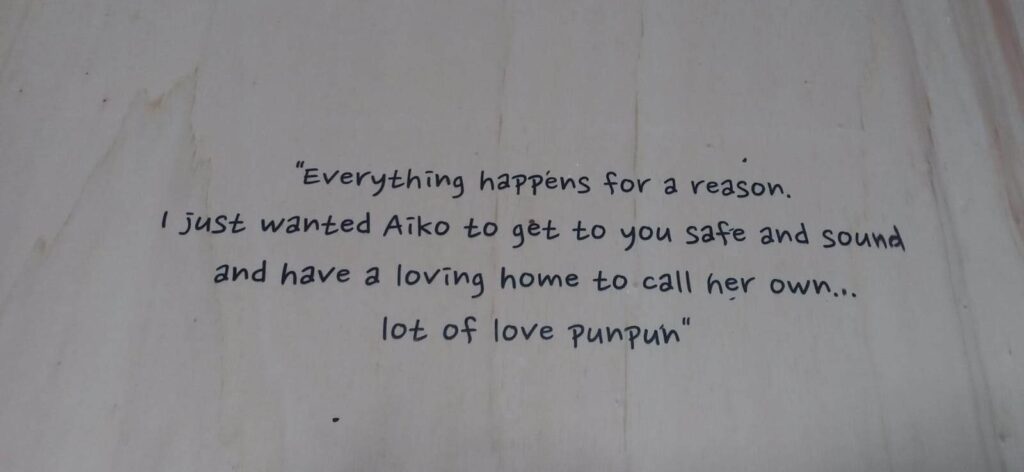 "Everything happens for a reason.
I just wanted Aiko to get to you safe and sound
and have a loving home to call her own...
lot of love punpun"